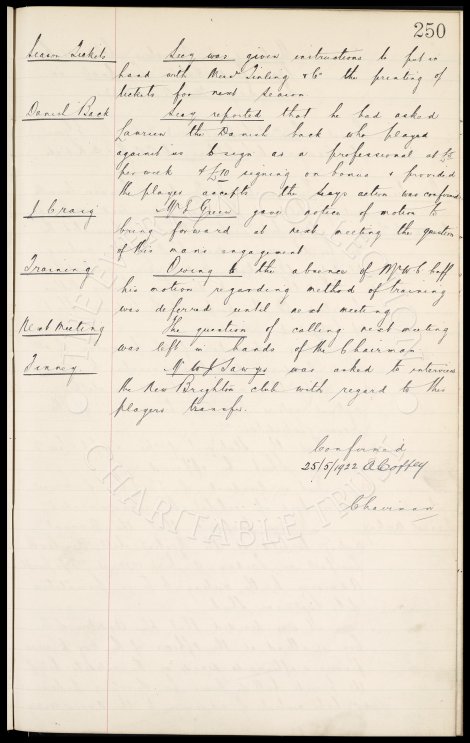 250
Season Tickets Secy was given instructions to put in
hand with Messrs Tinling & Co the printing of
tickets for next season
Danish Back Secy reported that he had asked
Laursen the Danish back who played
against us to sign as a professional at £5
per week & £10 signing on bonus & provided
the player accepts the Secys action was confirmed
J Craig Mr E Green gave notice of motion to
bring forward at next meeting the question
of this mans engagement
Training Owing to the absence of Mr W C Cuff
his motion regarding method of training
was deferred until next meeting
Next Meeting The question of calling next meeting
was left in hands of the Chairman
Finney Mr W J Sawyer was asked to interview
the New Brighton club with regard to this
players transfer.
Confirmed
25/5/1922 A Coffey
Chairman
THE EVERTON COLLECTION
CHARITABLE TRUST